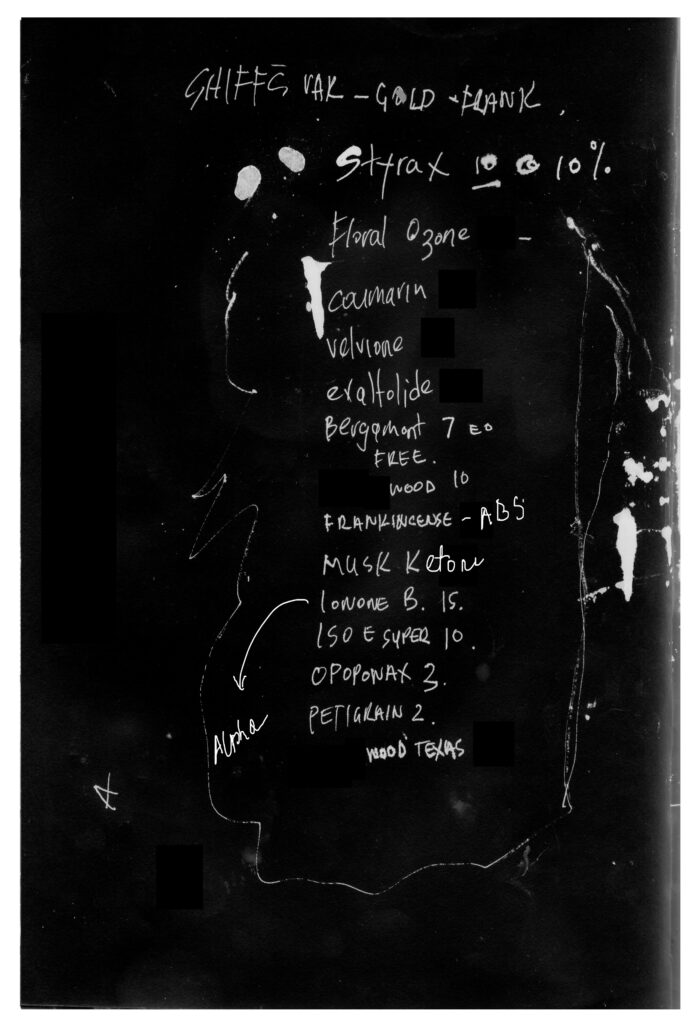 VAR - GOLD - FRANK
Styrax 10 @ 10%
Floral Ozone -
coumarin
velvione
exaltolide
Bergamont 7 EO
FREE.
WOOD 10
FRANKINCENSE - ABS
MUSK Ketone
IONONE B. 15.
ISO E SUPER 10.
OPOPONAX 3.
PETIGRAIN 2.
Alpha
WOOD TEXAS